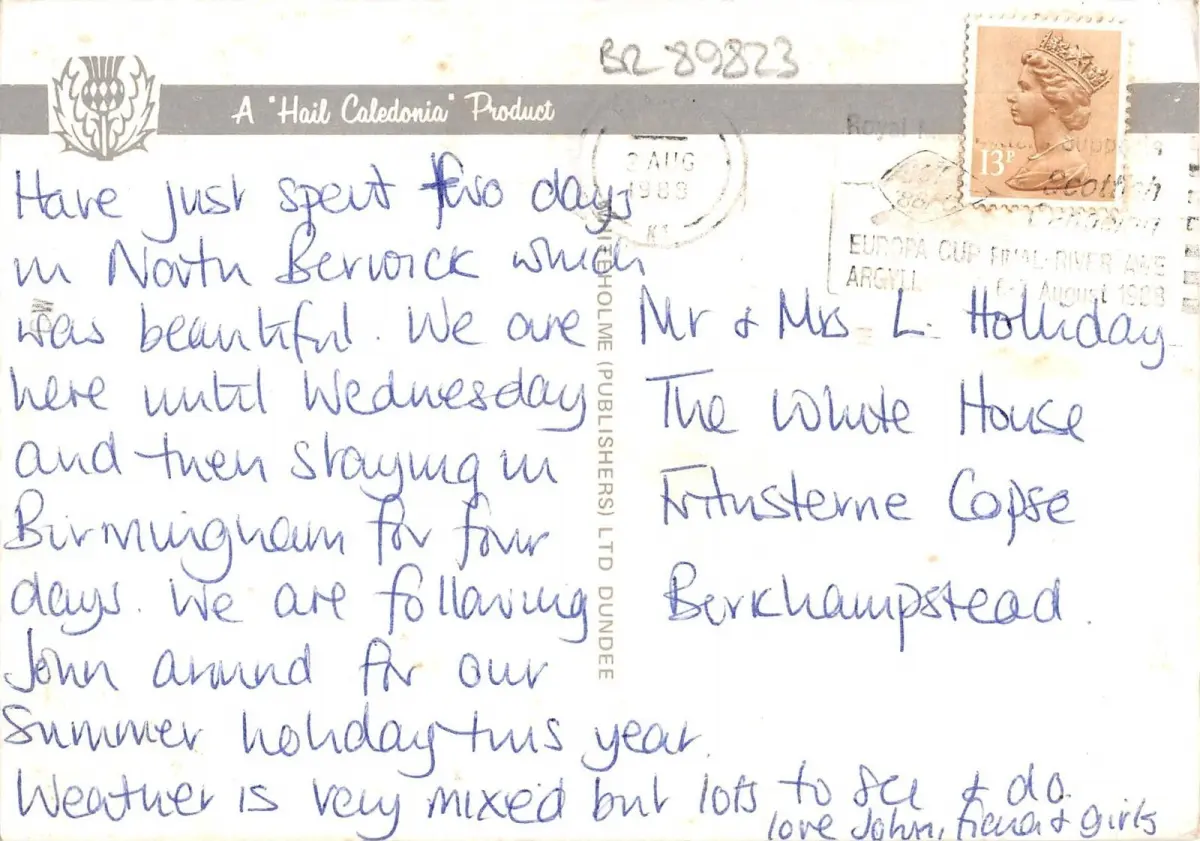 BR 89823
A "Hail Caledonia" Product
Have just spent two days
in North Berwick which
was beautiful. We are
here until Wednesday
and then staying in
Birmingham for four
days. We are following
John around for our
Summer holiday this year.
Weather is very mixed but lots to see & do.
love John, Fiona & girls
WHITEHOLME (PUBLISHERS) LTD DUNDEE
13P
AUG
1988
Royal
Scottish
Canoeing
EUROPA CUP FINAL-RIVER AWE
ARGYLL 6-7 August 1988
Mr & Mrs L. Holliday
The White House
Copse
Berkhampstead.